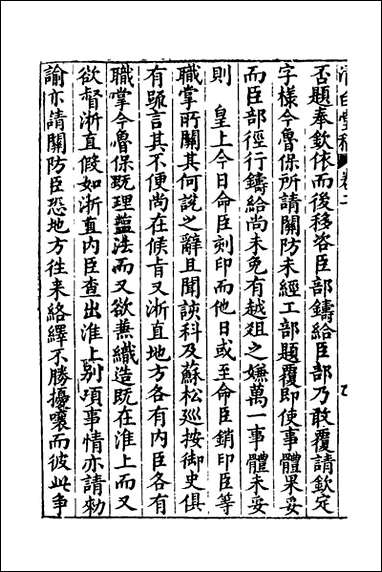 清白堂稿 卷二
否題奉欽依而後移咨臣部鑄給臣部乃敢覆請欽定
字樣今魯保所請關防未經工部題覆即使事體果妥
而臣部徑行鑄給尚未免有越俎之嫌萬一事體未妥
則　皇上今日命臣刻印而他日或至命臣銷印臣等
職掌所關其何說之辭且聞該科及蘇松巡按御史俱
有疏言其不便尚在候旨又浙直地方各有內臣各有
職掌今魯保既理鹽法而又欲兼織造既在淮上而又
欲督浙直假如浙直內臣查出淮上別項事情亦請勑
諭亦請關防臣恐地方徃来絡繹不勝擾嚷而彼此爭